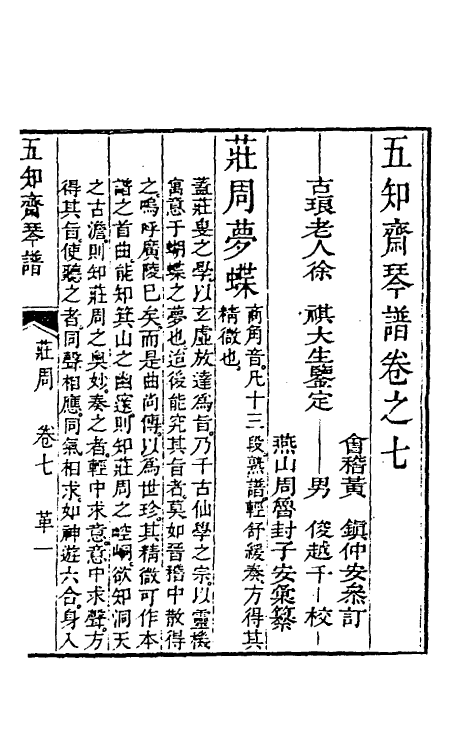 五知齋琴譜卷之七
會稽黃　鎮仲安叅訂
古琅老人徐　祺大生鑒定　男　俊越千校
燕山周魯封子安彙纂
莊周夢蝶
商角音。凡十三段。熟譜輕舒緩奏。方得其
精微也。
蓋莊叟之學。以玄虛放達為旨。乃千古仙學之宗。以靈機
寓意于蝴蝶之夢也。迨後能究其旨者。莫如晉嵇中散得
之。嗚呼廣陵已矣。而是曲尚傳。以為世珍。其精微可作本
譜之首曲。能知箕山之幽邃。則知莊周之崆峒。欲知洞天
之古澹。則知莊周之奧妙。奏之者。輕中求意。意中求聲。方
得其旨。使聽之者。同聲相應。同氣相求。如神遊六合。身入
五知齋琴譜
莊周　卷七　革一